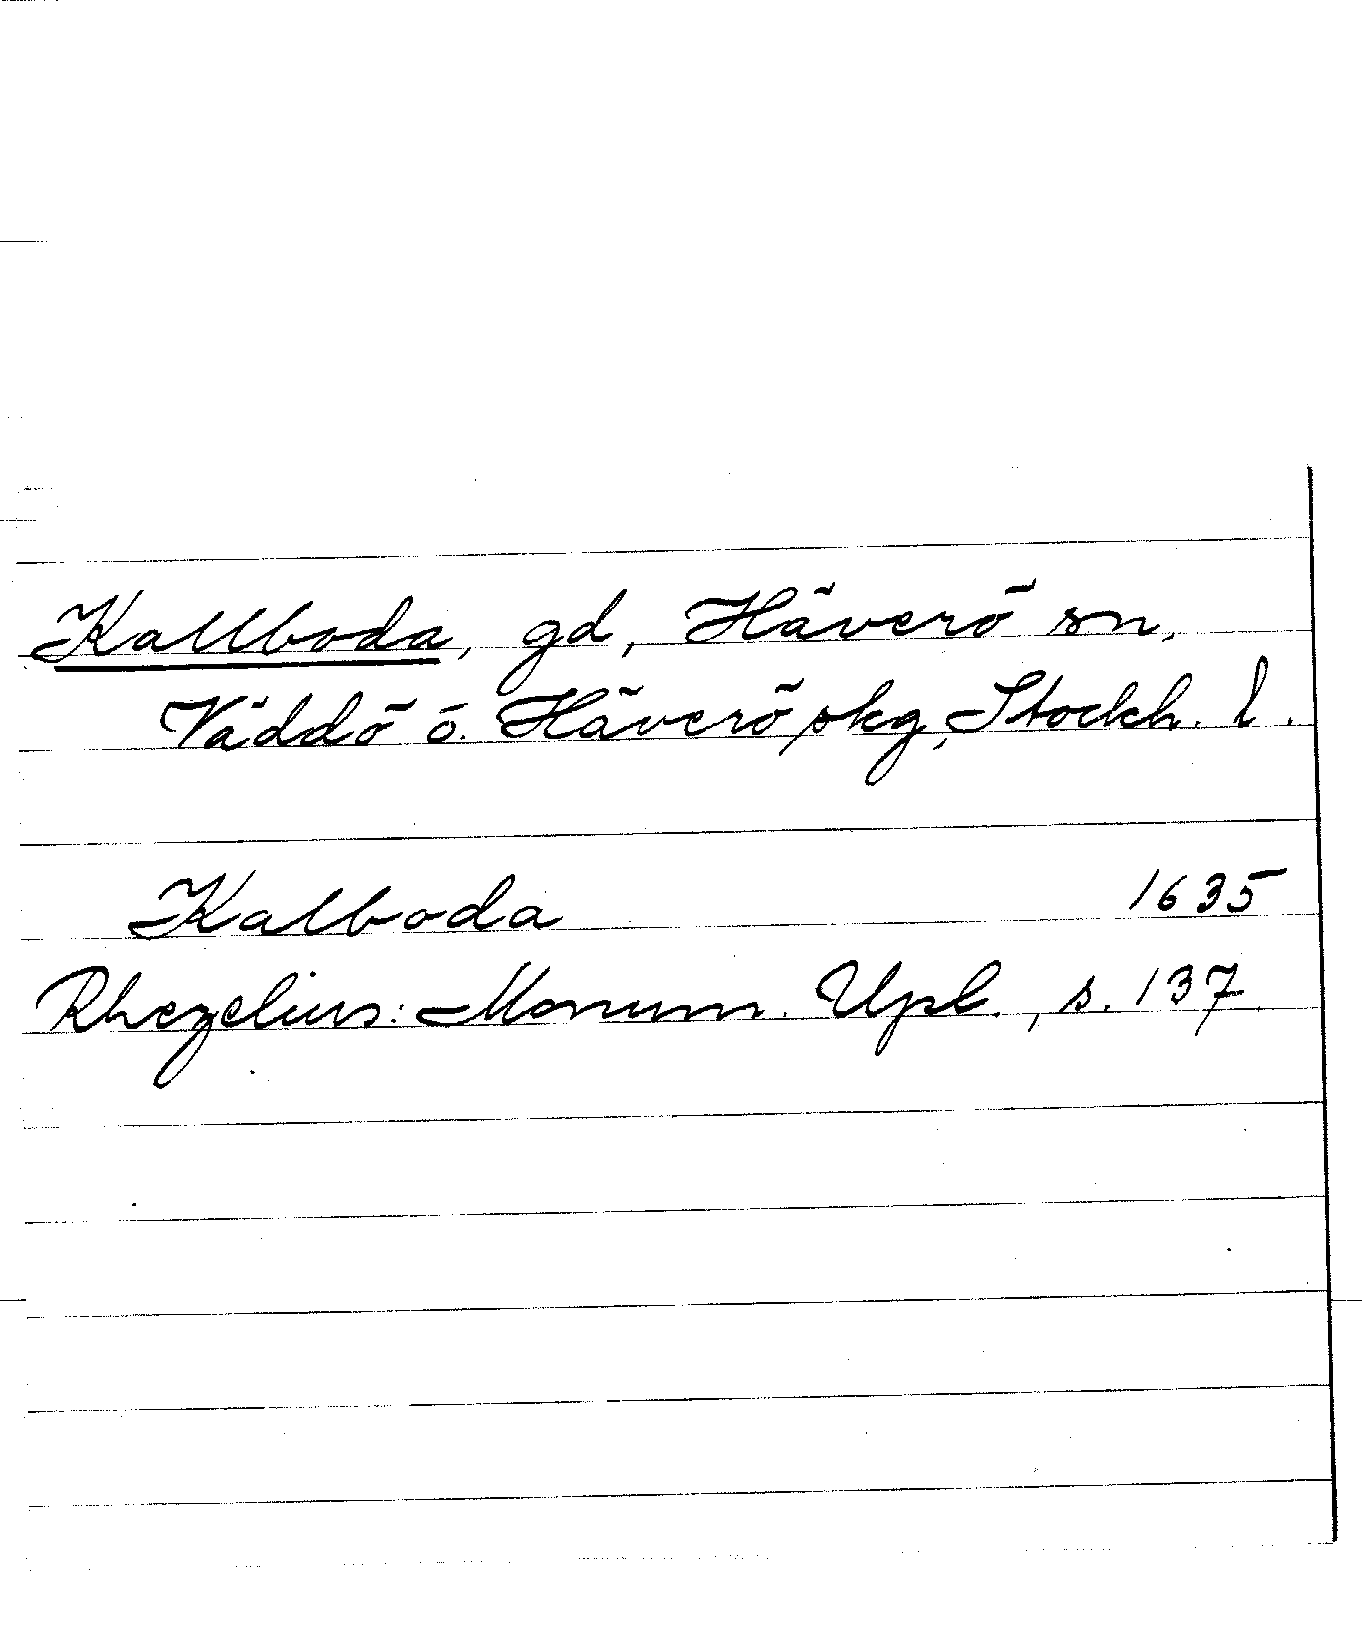 Kallboda, gd, Häverö sn,
Väddö o. Häverö skg, Stockh. l.
Kalboda 1635
Rhezelius: Monum. Upl., s. 137.